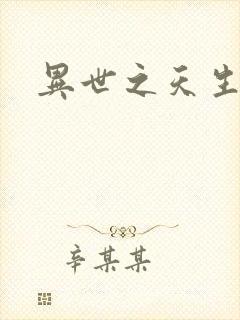 異世之天生
辛某某